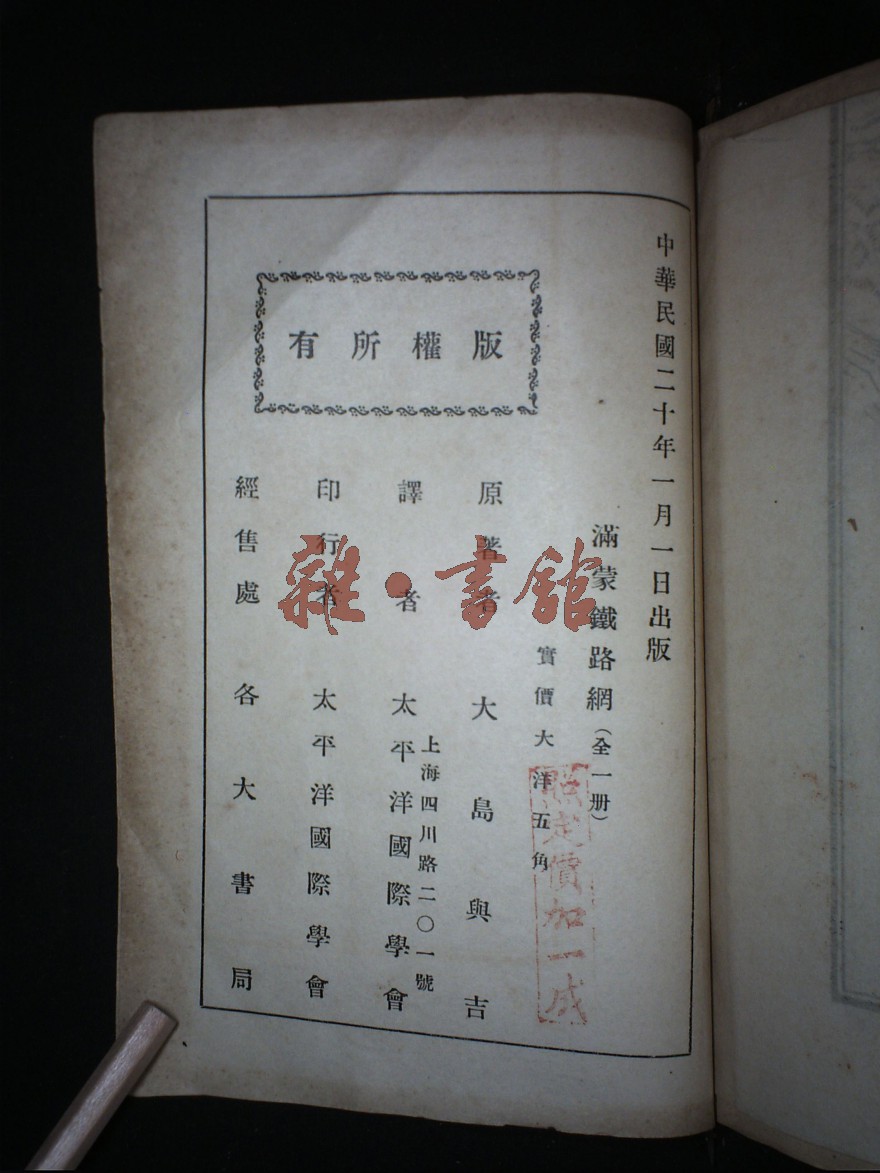 中華民國二十年一月一日出版
滿蒙鐵路網（全一册）
實價大洋五角
照定價加一成
版權所有
原著者 大島與吉
上海四川路二〇一號
譯者 太平洋國際學會
印行者 太平洋國際學會
經售處 各大書局
雜·書館